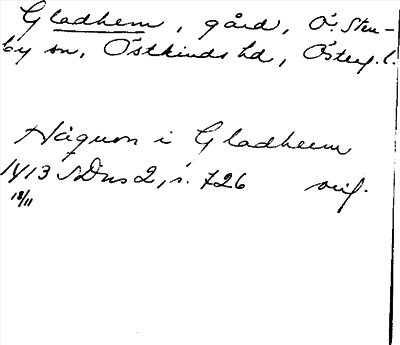 Gladhem, gård, Ö. Sten-
by sn, Östkinds hd, Östergl.
Håquon i Gladheem
1413 SDns 2, s. 726 orig.
18/11